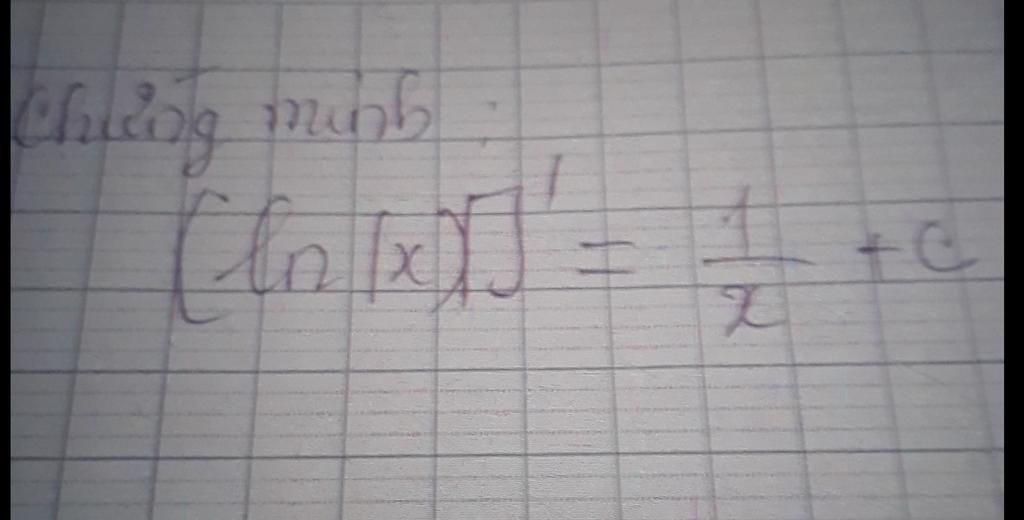 Chứng minh :
[ln |x|]' = 1/x + C